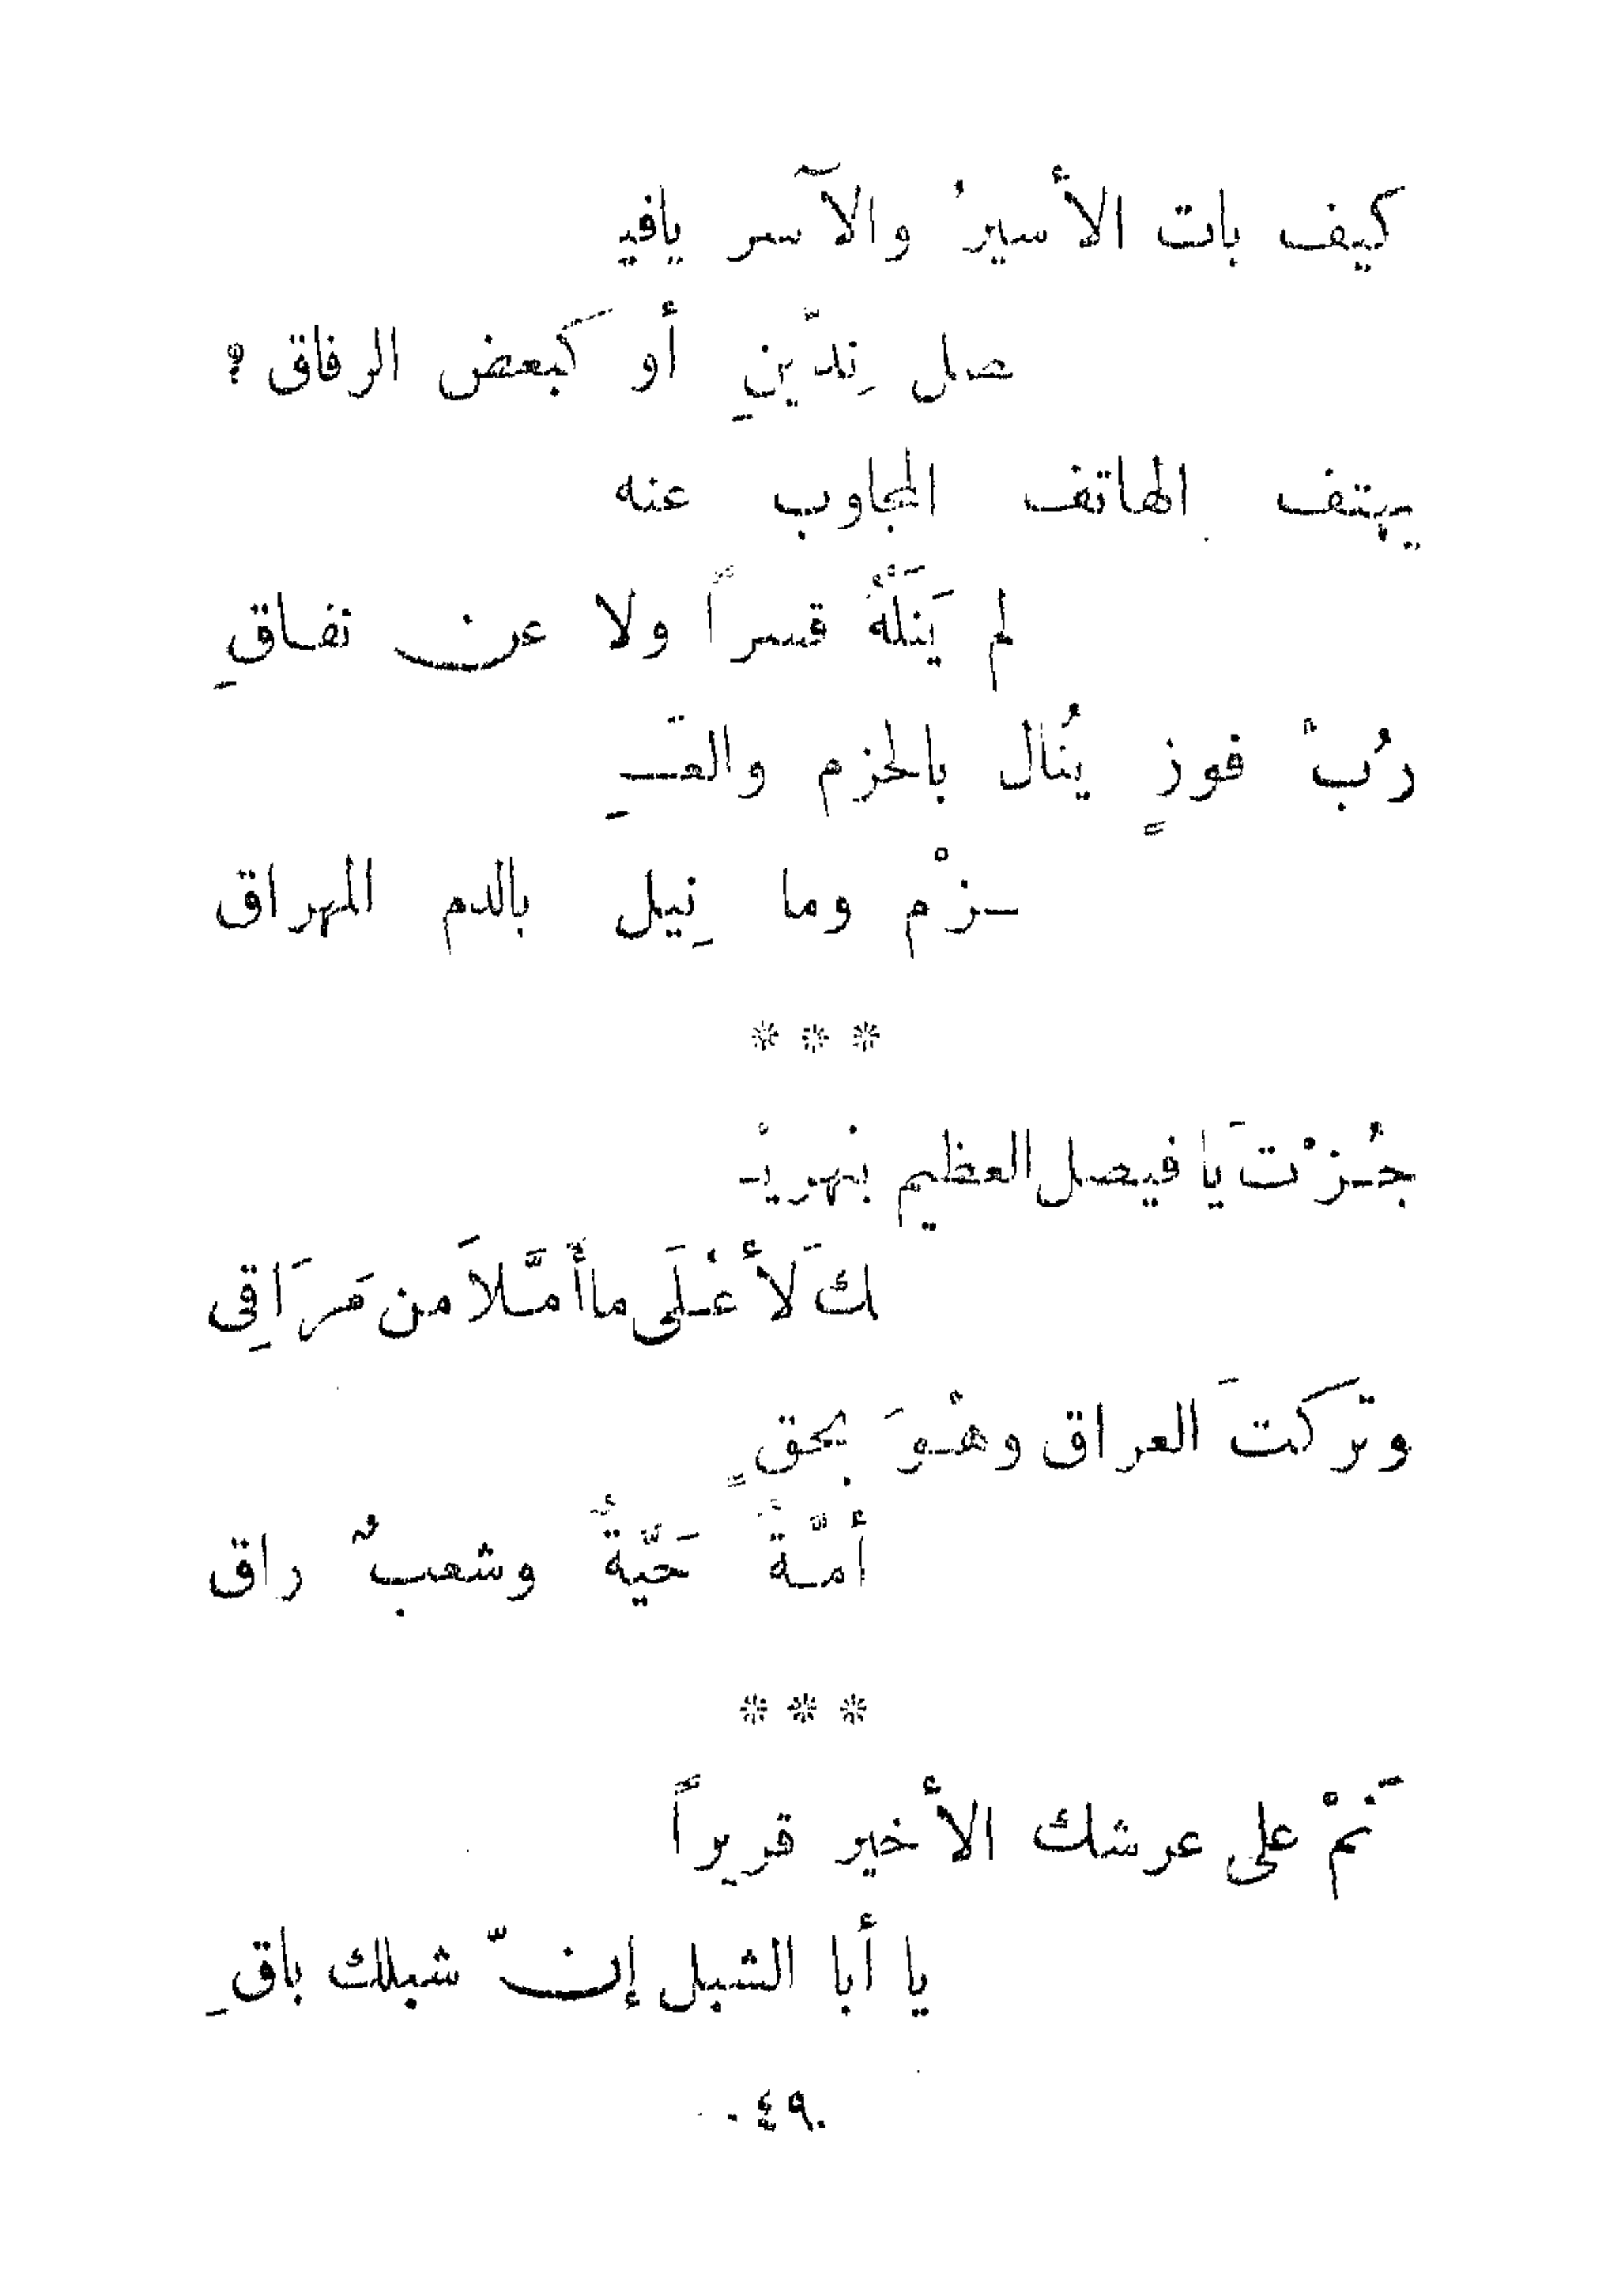 كيف بات الأسيرُ والآسر يافيـ
صل نِدّينِ أو كبعض الرفاق ؟
يهتف الهاتف المجاوب عنه
لم يَنَلْهُ قسراً ولا عن نفاقِ
رُبّ فوزٍ يُنال بالحزم والعَـ
ـزْم وما نِيل بالدم المهراق
* * *
جُـزْتَ يا فيصل العظيم بنهريْـ
ـكَ لَأعْلَى ما أمَّلَا من مَرَاقِي
وتركتَ العراق وهْـوَ بحقٍ
أمّـةً حَيَّةً وشعبٌ راق
* * *
نَمْ على عرشك الأخير قريراً
يا أبا الشبل إنّ شبلك باقِ
٤٩